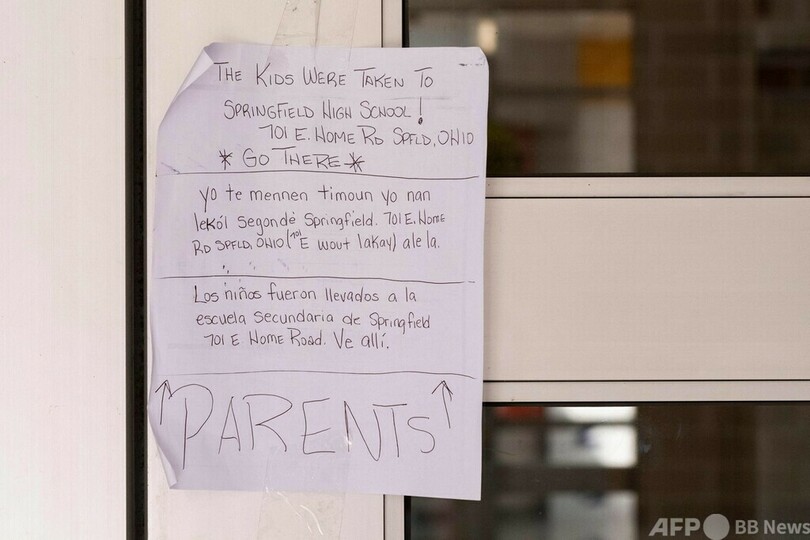 THE KIDS WERE TAKEN TO
SPRINGFIELD HIGH SCHOOL!
701 E. HOME RD SPFLD, OHIO
* GO THERE *
yo te mennen timoun yo nan
lekól segondè Springfield. 701 E. HOME
RD SPFLD, OHIO (701 E wout lakay) ale la.
Los niños fueron llevados a la
escuela secundaria de Springfield
701 E HOME ROAD. Ve allí.
↑ PARENTS ↑
AFP BB News